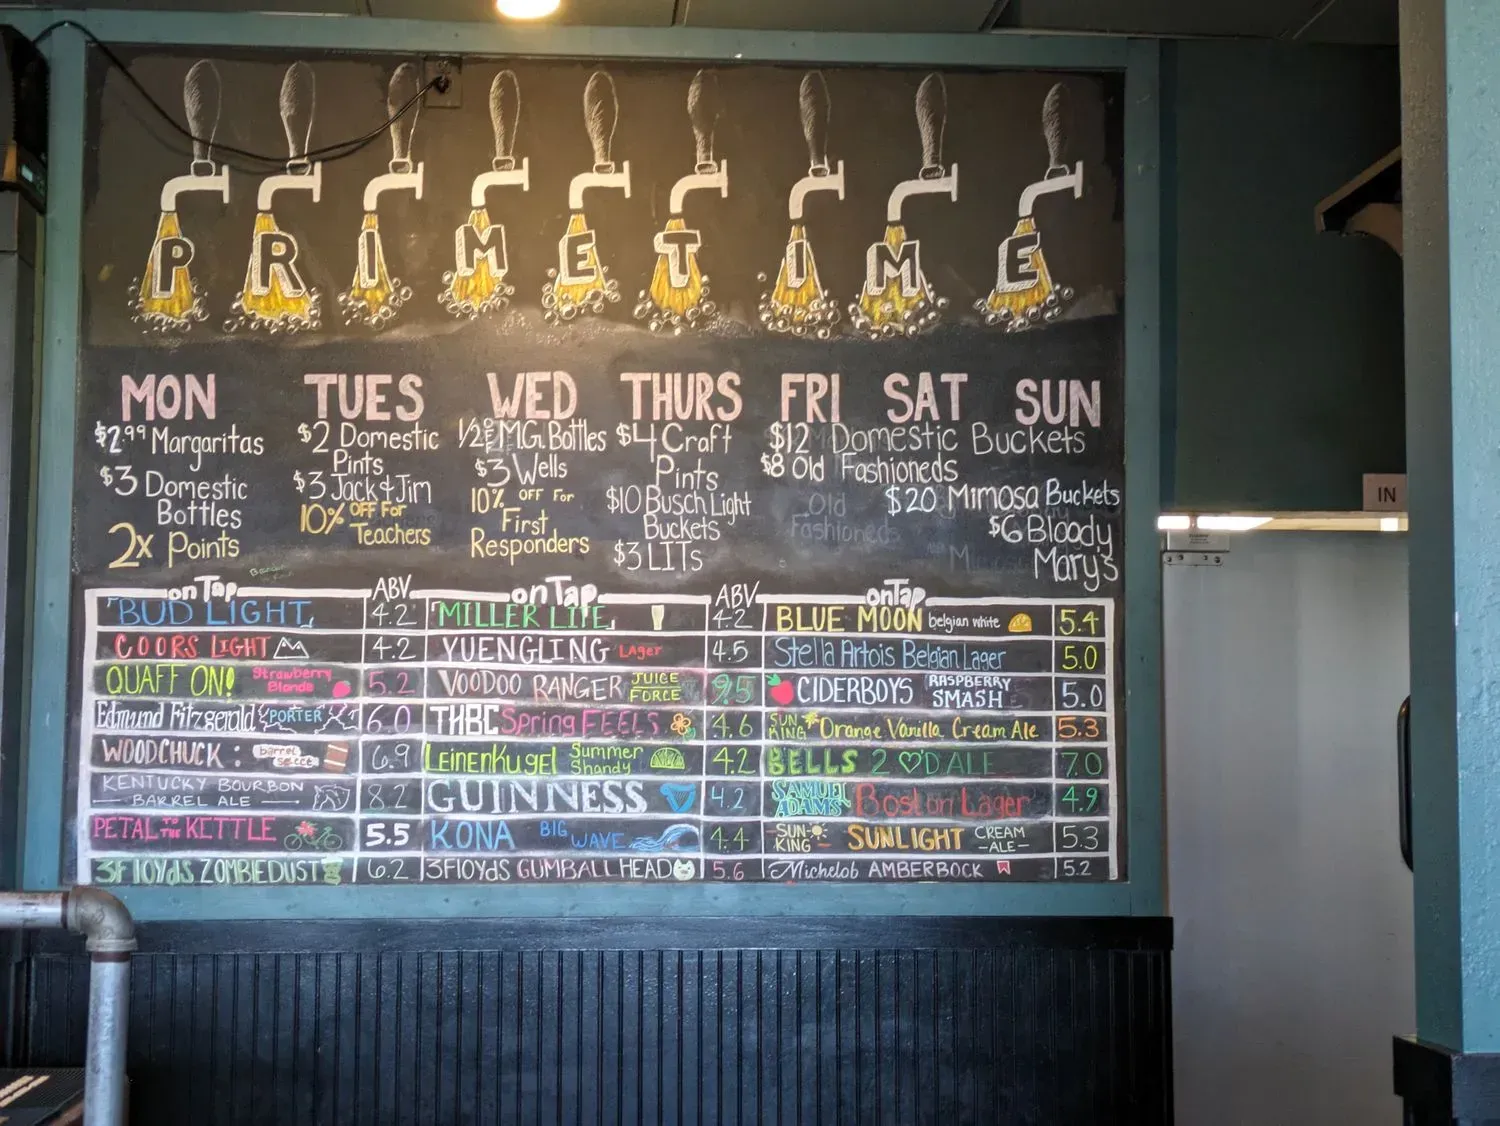 PRIMETIME
MON
$2.99 Margaritas
$3 Domestic
Bottles
2x Points
TUES
$2 Domestic
Pints
$3 Jack & Jim
10% OFF For
Teachers
WED
1/2 OFF M.G. Bottles
$3 Wells
10% OFF For
First
Responders
THURS
$4 Craft
Pints
$10 Busch Light
Buckets
$3 LITs
FRI SAT SUN
$12 Domestic Buckets
$8 Old Fashioneds
$20 Mimosa Buckets
$6 Bloody
Mary's
Old
Fashioneds
IN
on Tap ABV
BUD LIGHT 4.2
COORS LIGHT 4.2
QUAFF ON! Strawberry Blonde 5.2
Edmund Fitzgerald PORTER 6.0
WOODCHUCK: barrel select 6.9
KENTUCKY BOURBON BARREL ALE 8.2
PETAL TO THE KETTLE 5.5
3FLOYDS ZOMBIEDUST 6.2
on Tap ABV
MILLER LITE 4.2
YUENGLING LAGER 4.5
VOODOO RANGER JUICE FORCE 9.5
THBC Spring FEELS 4.6
LEINENKUGEL Summer Shandy 4.2
GUINNESS 4.2
KONA BIG WAVE 4.4
3FLOYDS GUMBALL HEAD 5.6
on Tap
BLUE MOON belgian white 5.4
Stella Artois Belgian Lager 5.0
CIDERBOYS RASPBERRY SMASH 5.0
SUN KING Orange Vanilla Cream Ale 5.3
BELLS 2 ♡'D ALE 7.0
SAMUEL ADAMS Boston Lager 4.9
SUN KING SUNLIGHT CREAM -ALE- 5.3
Michelob AMBERBOCK 5.2